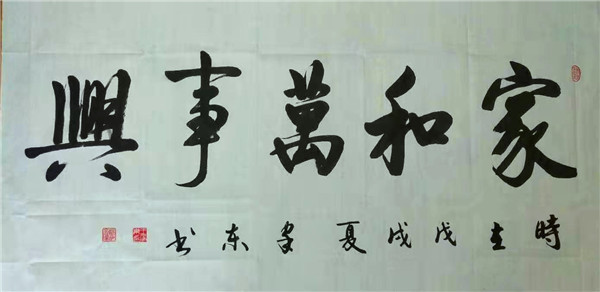 家和萬事興
時在戊戌夏东书